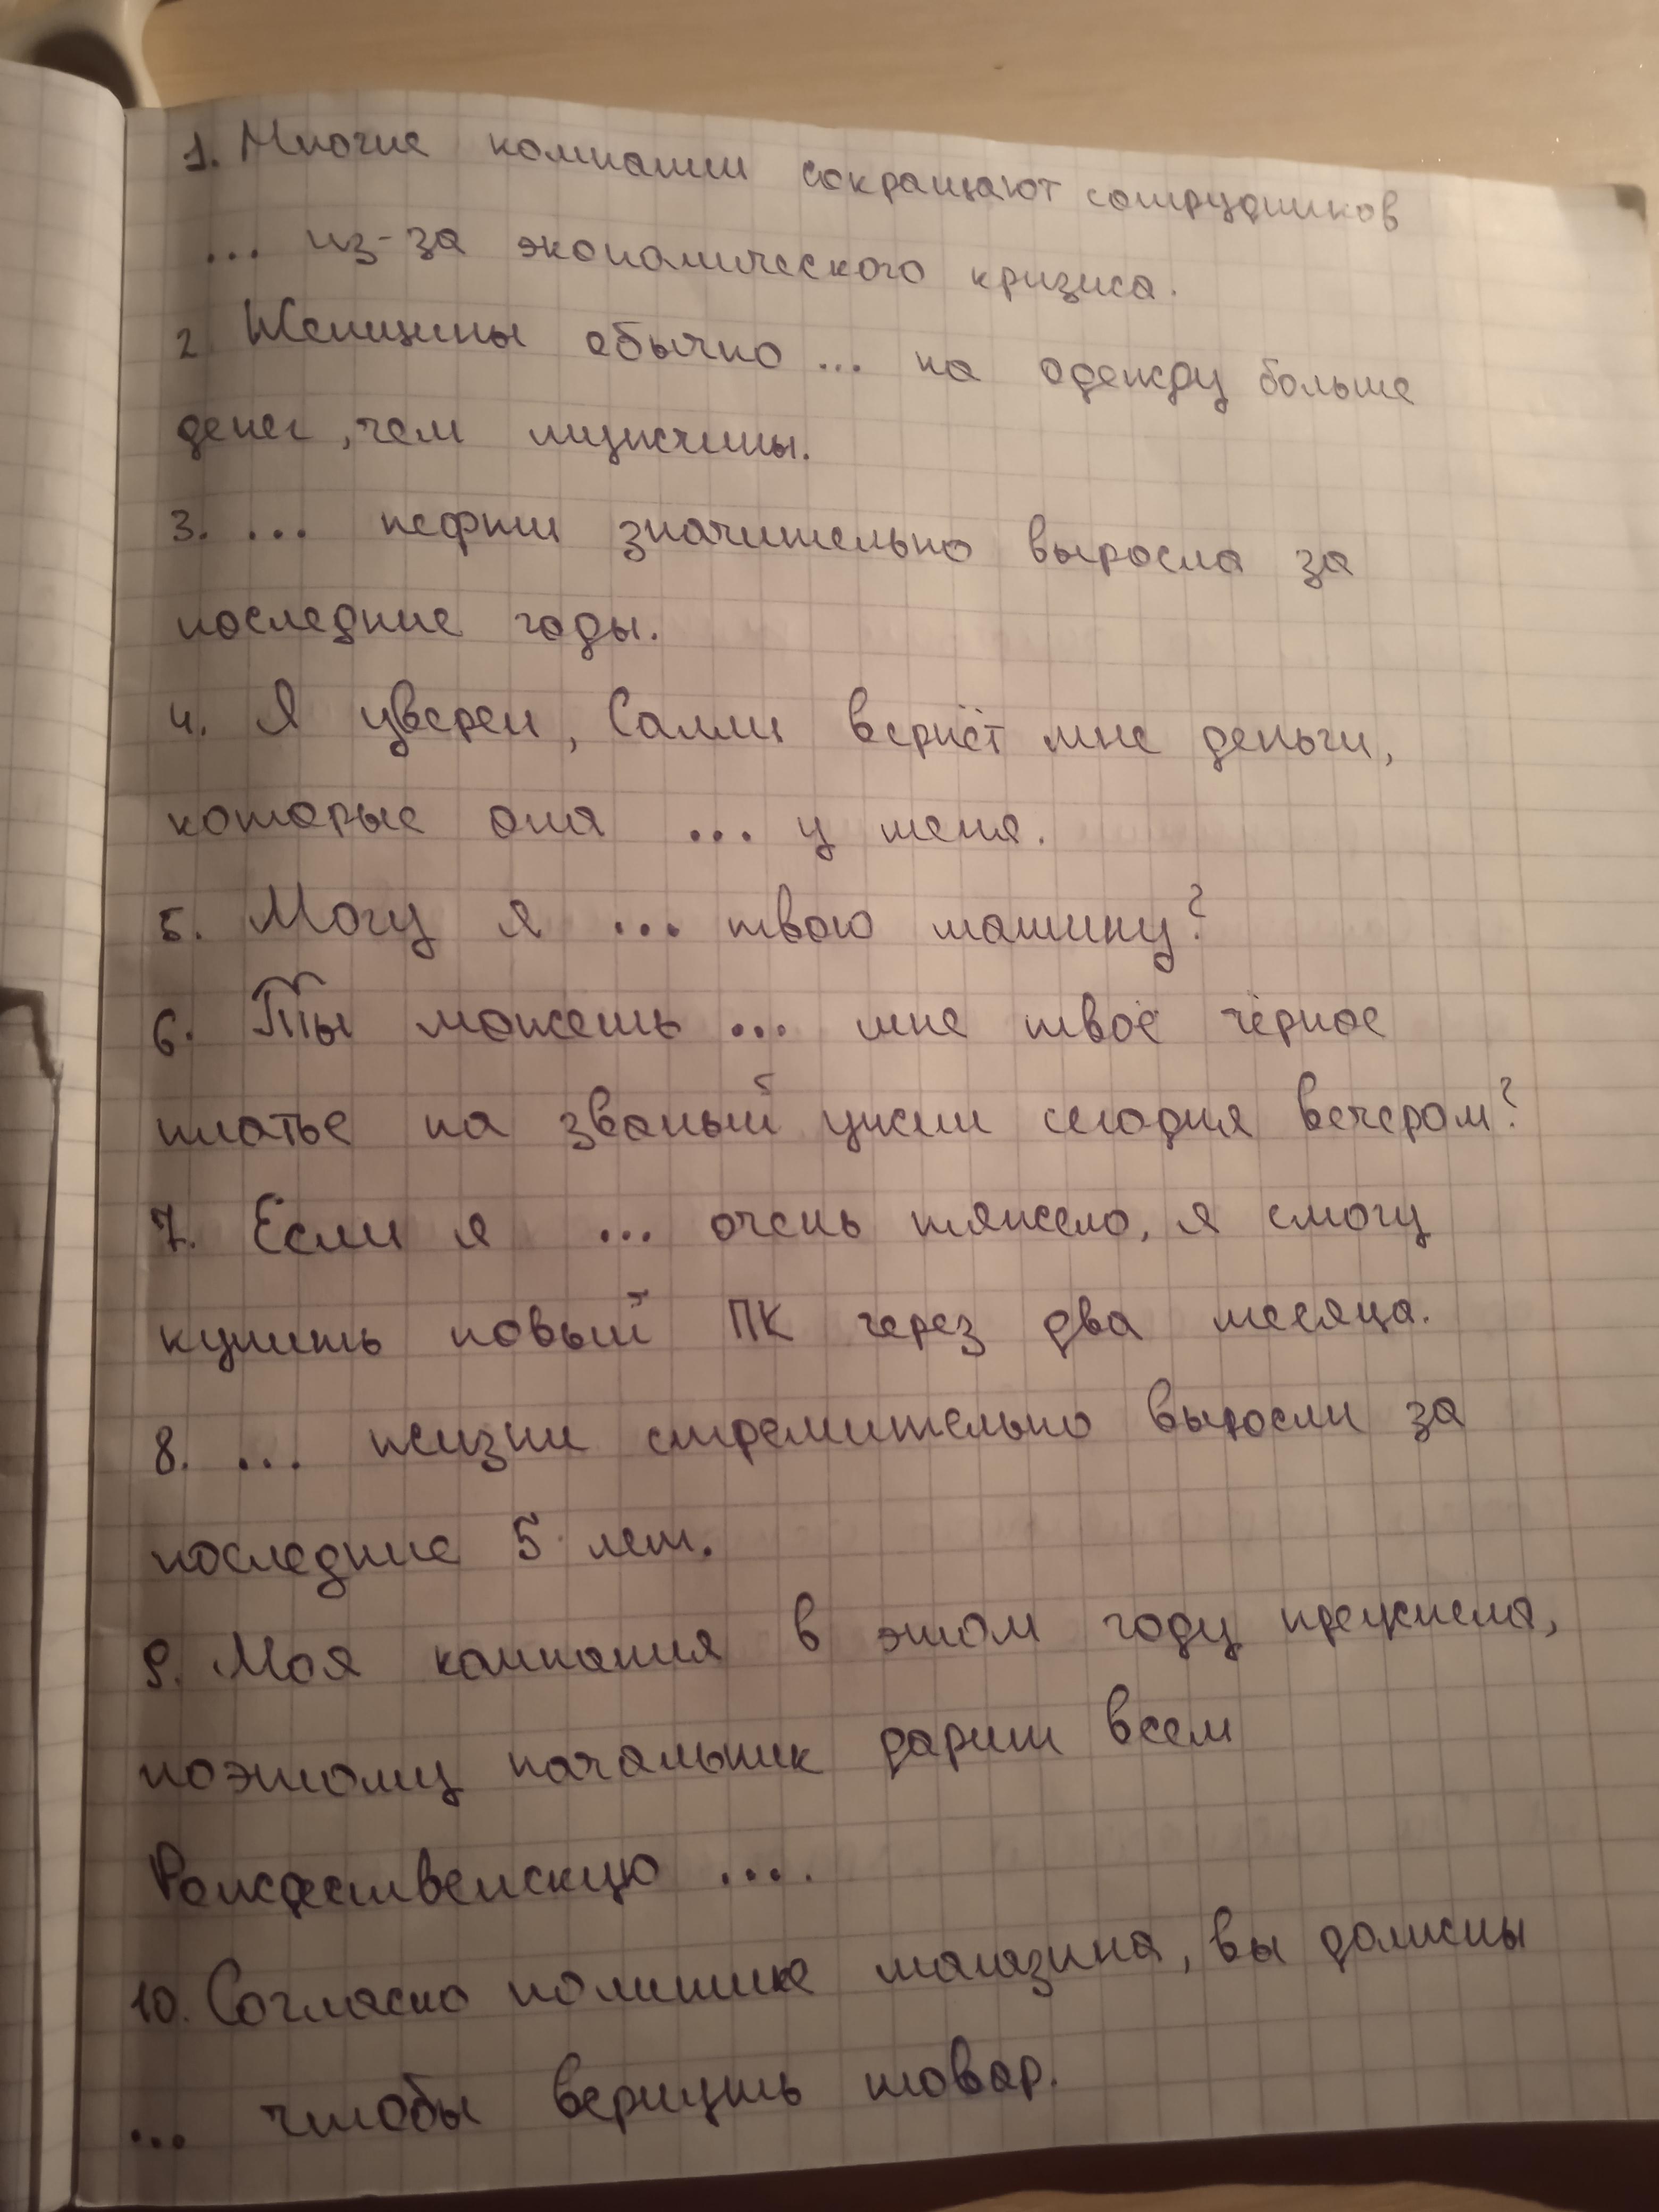 1. Многие компании сокращают сотрудников
... из-за экономического кризиса.
2 Женщины обычно ... на одежду больше
денег, чем мужчины.
3. ... нефти значительно выросла за
последние годы.
4. Я уверен, Салли вернёт мне деньги,
которые она ... у меня.
5. Могу я ... твою машину?
6. Ты можешь ... мне твоё чёрное
платье на званый ужин сегодня вечером?
7. Если я ... очень тяжело, я смогу
купить новый ПК через два месяца.
8. ... жизни стремительно выросли за
последние 5 лет.
9. Моя компания в этом году преуспела,
поэтому начальник дарит всем
Рождественскую ....
10. Согласно политике магазина, вы должны
... чтобы вернуть товар.